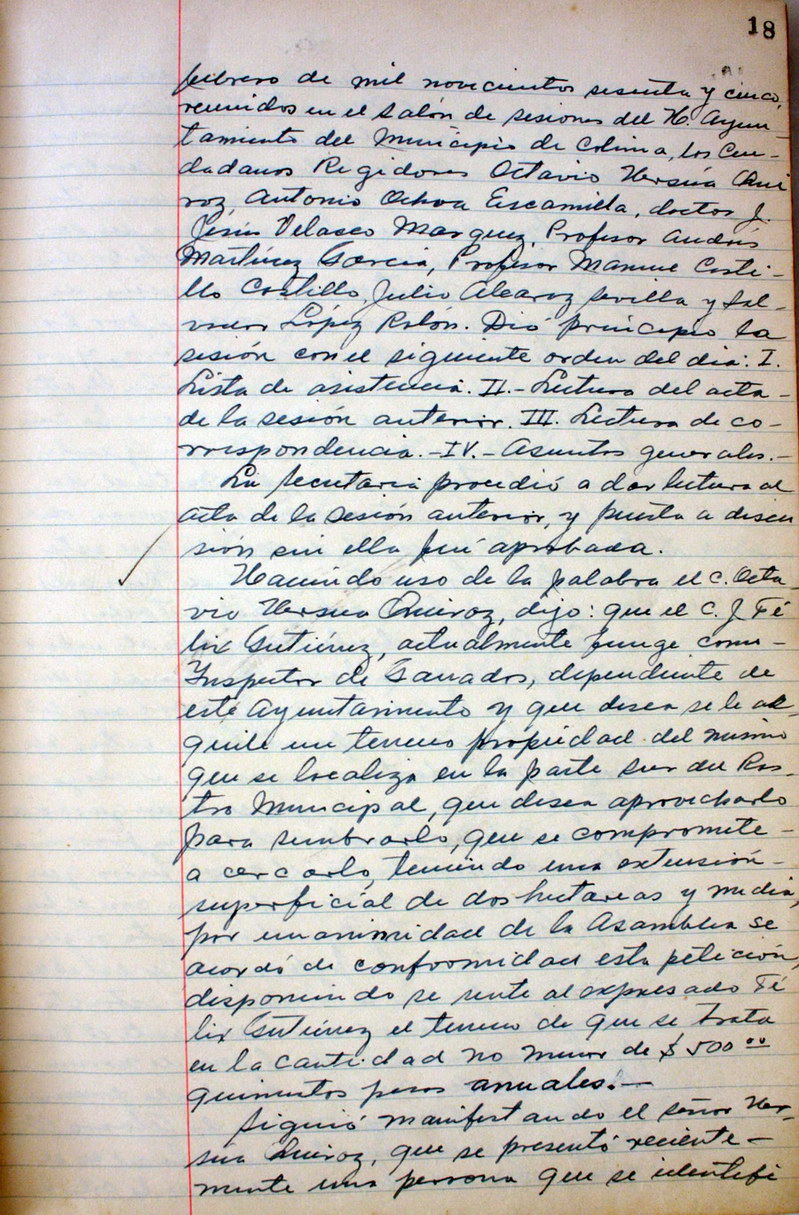 18
febrero de mil novecientos sesenta y cinco,
reunidos en el salón de sesiones del H. Ayun-
tamiento del Municipio de Colima, los Ciu-
dadanos Regidores Octavio Versúa Qui
roz, Antonio Ochoa Escamilla, doctor J.
Jesús Velasco Marquez, Profesor Andrés
Martínez García, Profesor Manuel Casti-
llo Castillo, Julio Alcaraz Sevilla y Sal-
vador López Rolón. Dió principio la
sesión con el siguiente orden del dia: I.
Lista de asistencia. II.- Lectura del acta-
de la sesión anterior. III. Lectura de co-
rrespondencia.-IV.- Asuntos generales.-
La Secretaria procedió a dar lectura al
acta de la sesión anterior, y puesta a discu
sión sin ella fué aprobada.
Haciendo uso de la palabra el C. Octa-
vio Versua Quiroz, dijo: que el C. J. Fé
lix Gutiérrez, actualmente funge como-
Inspector de Ganados, dependiente de
este Ayuntamiento y que desea se le al-
quile un terreno propiedad del mismo
que se localiza en la parte sur del Ras-
tro Municipal, que desea aprovecharlo
para sembrarlo, que se compromete-
a cercarlo, teniendo una extensión-
superficial de dos hectareas y media,
por unanimidad de la Asamblea se
acordó de conformidad esta petición,
disponiendo se rente al expresado Fé
lix Gutiérrez el terreno de que se trata
en la cantidad no menor de $ 500 00
quinientos pesos anuales.-
Siguió manifestando el señor Ver-
sua Quiroz, que se presentó reciente-
mente una persona que se identifi